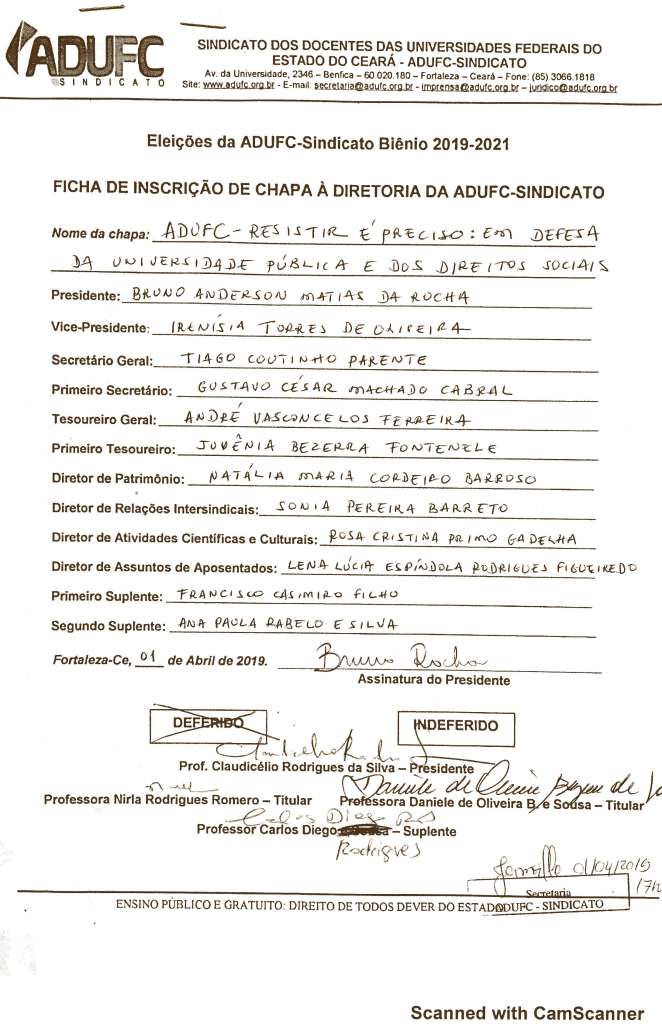 ADUFC
SINDICATO
SINDICATO DOS DOCENTES DAS UNIVERSIDADES FEDERAIS DO
ESTADO DO CEARÁ - ADUFC-SINDICATO
Av. da Universidade, 2346 – Benfica – 60.020.180 – Fortaleza – Ceará – Fone: (85) 3066.1818
Site: www.adufc.org.br - E-mail: secretaria@adufc.org.br - imprensa@adufc.org.br – juridico@adufc.org.br
Eleições da ADUFC-Sindicato Biênio 2019-2021
FICHA DE INSCRIÇÃO DE CHAPA À DIRETORIA DA ADUFC-SINDICATO
Nome da chapa: ADUFC - RESISTIR É PRECISO: EM DEFESA
DA UNIVERSIDADE PÚBLICA E DOS DIREITOS SOCIAIS
Presidente: BRUNO ANDERSON MATIAS DA ROCHA
Vice-Presidente: IRENÍSIA TORRES DE OLIVEIRA
Secretário Geral: TIAGO COUTINHO PARENTE
Primeiro Secretário: GUSTAVO CÉSAR MACHADO CABRAL
Tesoureiro Geral: ANDRÉ VASCONCELOS FERREIRA
Primeiro Tesoureiro: JUVÊNIA BEZERRA FONTENELE
Diretor de Patrimônio: NATÁLIA MARIA CORDEIRO BARROSO
Diretor de Relações Intersindicais: SONIA PEREIRA BARRETO
Diretor de Atividades Científicas e Culturais: ROSA CRISTINA PRIMO GADELHA
Diretor de Assuntos de Aposentados: LENA LÚCIA ESPÍNDOLA RODRIGUES FIGUEIREDO
Primeiro Suplente: FRANCISCO CASIMIRO FILHO
Segundo Suplente: ANA PAULA RABELO E SILVA
Fortaleza-Ce, 01 de Abril de 2019. Bruno Rocha
Assinatura do Presidente
DEFERIDO INDEFERIDO
Prof. Claudicélio Rodrigues da Silva – Presidente
Daniele de Oliveira Bezerra de
Professora Nirla Rodrigues Romero – Titular Professora Daniele de Oliveira B. e Sousa – Titular
Carlos Diego
Professor Carlos Diego Sousa – Suplente
Rodrigues
01/04/2019
17h
Secretaria
ENSINO PÚBLICO E GRATUITO: DIREITO DE TODOS DEVER DO ESTADO
ADUFC - SINDICATO
Scanned with CamScanner